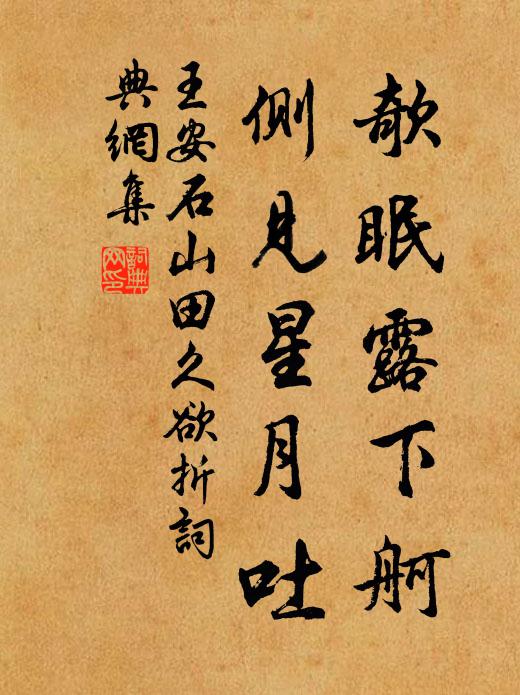 欹眠露下舸
侧见星月吐
王安石山田久欲折詞
典網集
詞典网印